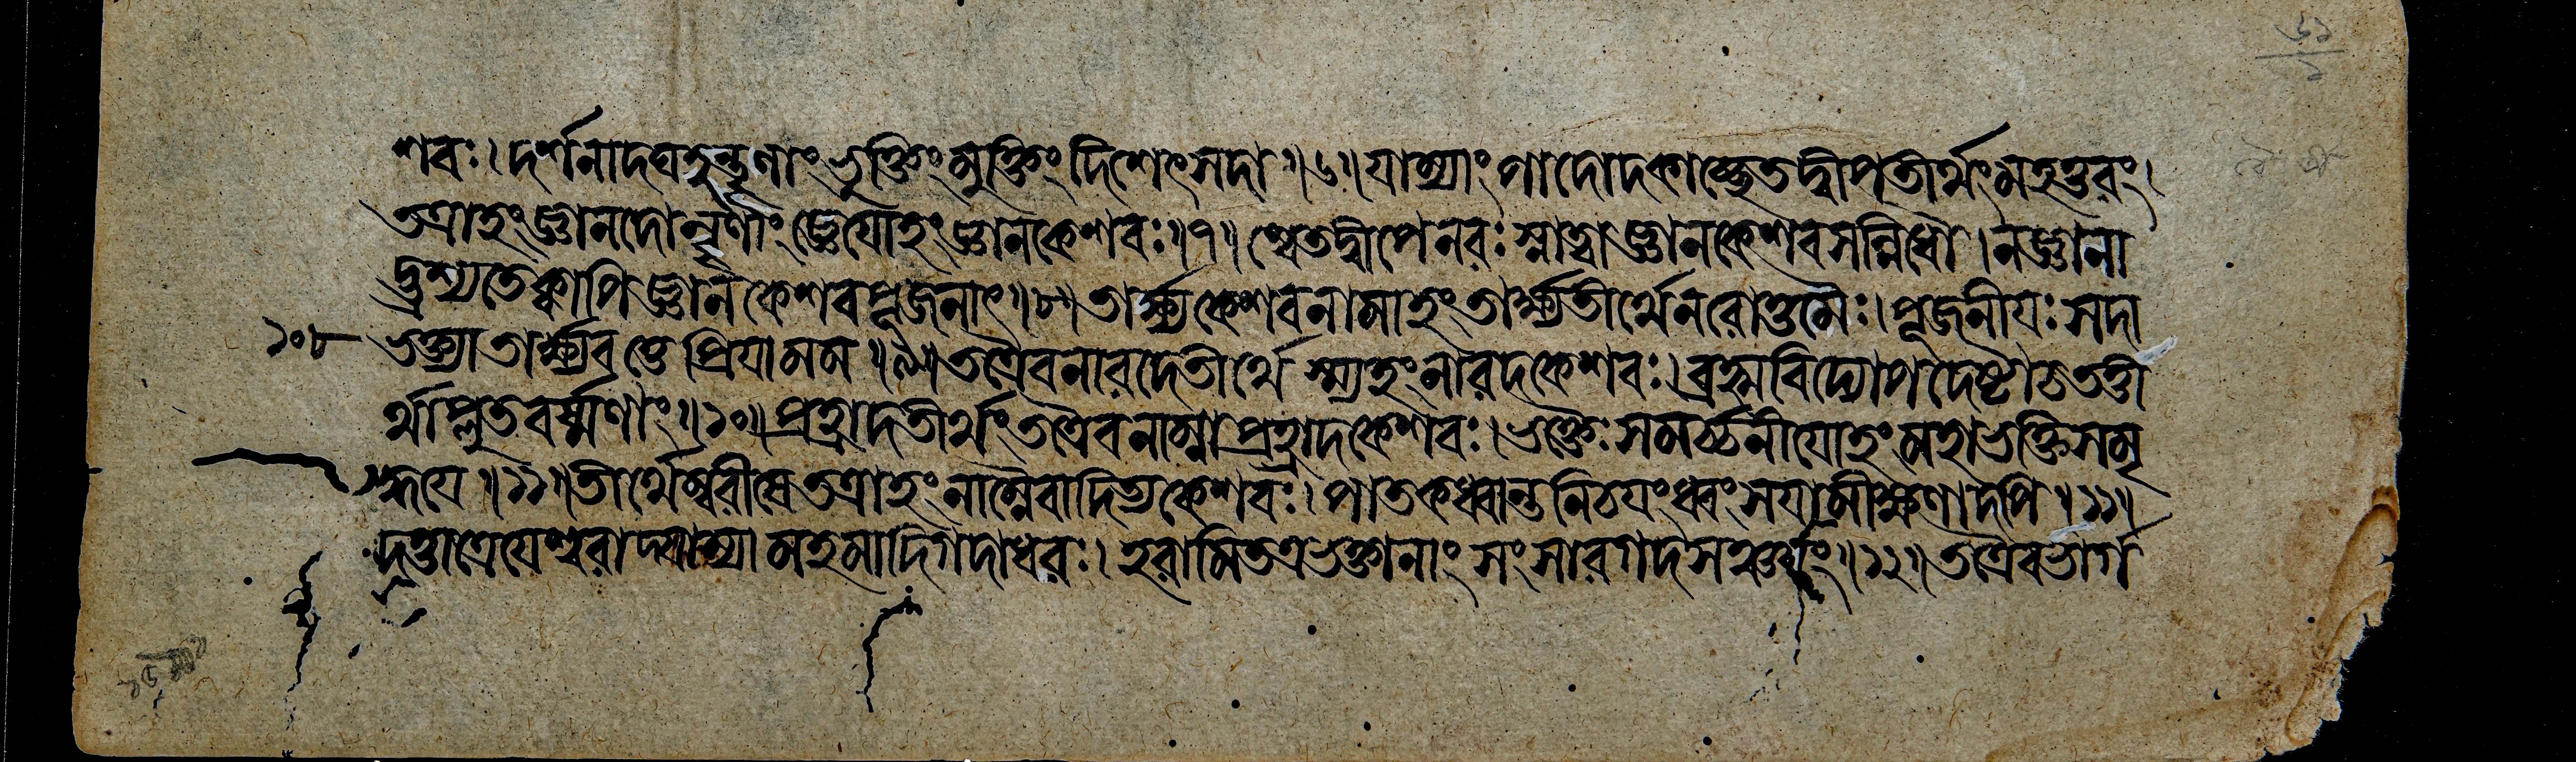 শবঃ। দর্শনাদঘহন্তৄণাং ভুক্তিং মুক্তিং দিশেৎ সদা॥৬॥ যাম্যাং পাদোদকাচ্ছ্বেতদ্বীপতীর্থং মহত্তরং।
তত্রাহং জ্ঞানদোনৄণাং জ্ঞেয়োহং জ্ঞানকেশবঃ॥৭॥ শ্বেতদ্বীপে নরঃ স্নাত্বা জ্ঞানকেশবসন্নিধৌ। ন জ্ঞানা
দ্ভ্রশ্যতে ক্বাপি জ্ঞানকেশবপূজনাৎ॥৮॥ তার্ক্ষ্যকেশবনামাহং তার্ক্ষ্যতীর্থে নরোত্তমৈঃ। পূজনীয়ঃ সদা
১০৮ ভক্ত্যা তার্ক্ষ্যবত্তে প্রিয়া মম॥৯॥ তত্রৈব নারদে তীর্থে স্ম্যহং নারদকেশবঃ। ব্রহ্মবিদ্যোপদেষ্টা চ তত্তী
র্থাপ্লুতবর্ষ্মণাং॥১০॥ প্রহ্রাদতীর্থং তত্রৈব নাম্না প্রহ্রাদকেশবঃ। ভক্তৈঃ সমর্চ্চনীয়োহং মহাভক্তিসমৃ
দ্ধয়ে॥১১॥ তীর্থেম্বরীষে তত্রাহং নাম্নৈবাদিত্যকেশবঃ। পাতকধ্বান্তনিচয়ং ধ্বংসয়ামীক্ষণাদপি॥১১॥
দত্তাত্রেয়েশ্বরাদ্যাম্যামহমাদিগদাধরঃ। হরামি তত্র ভক্তানাং সংসারগদসঞ্চয়ং॥১২॥ তত্রৈব ভার্গ